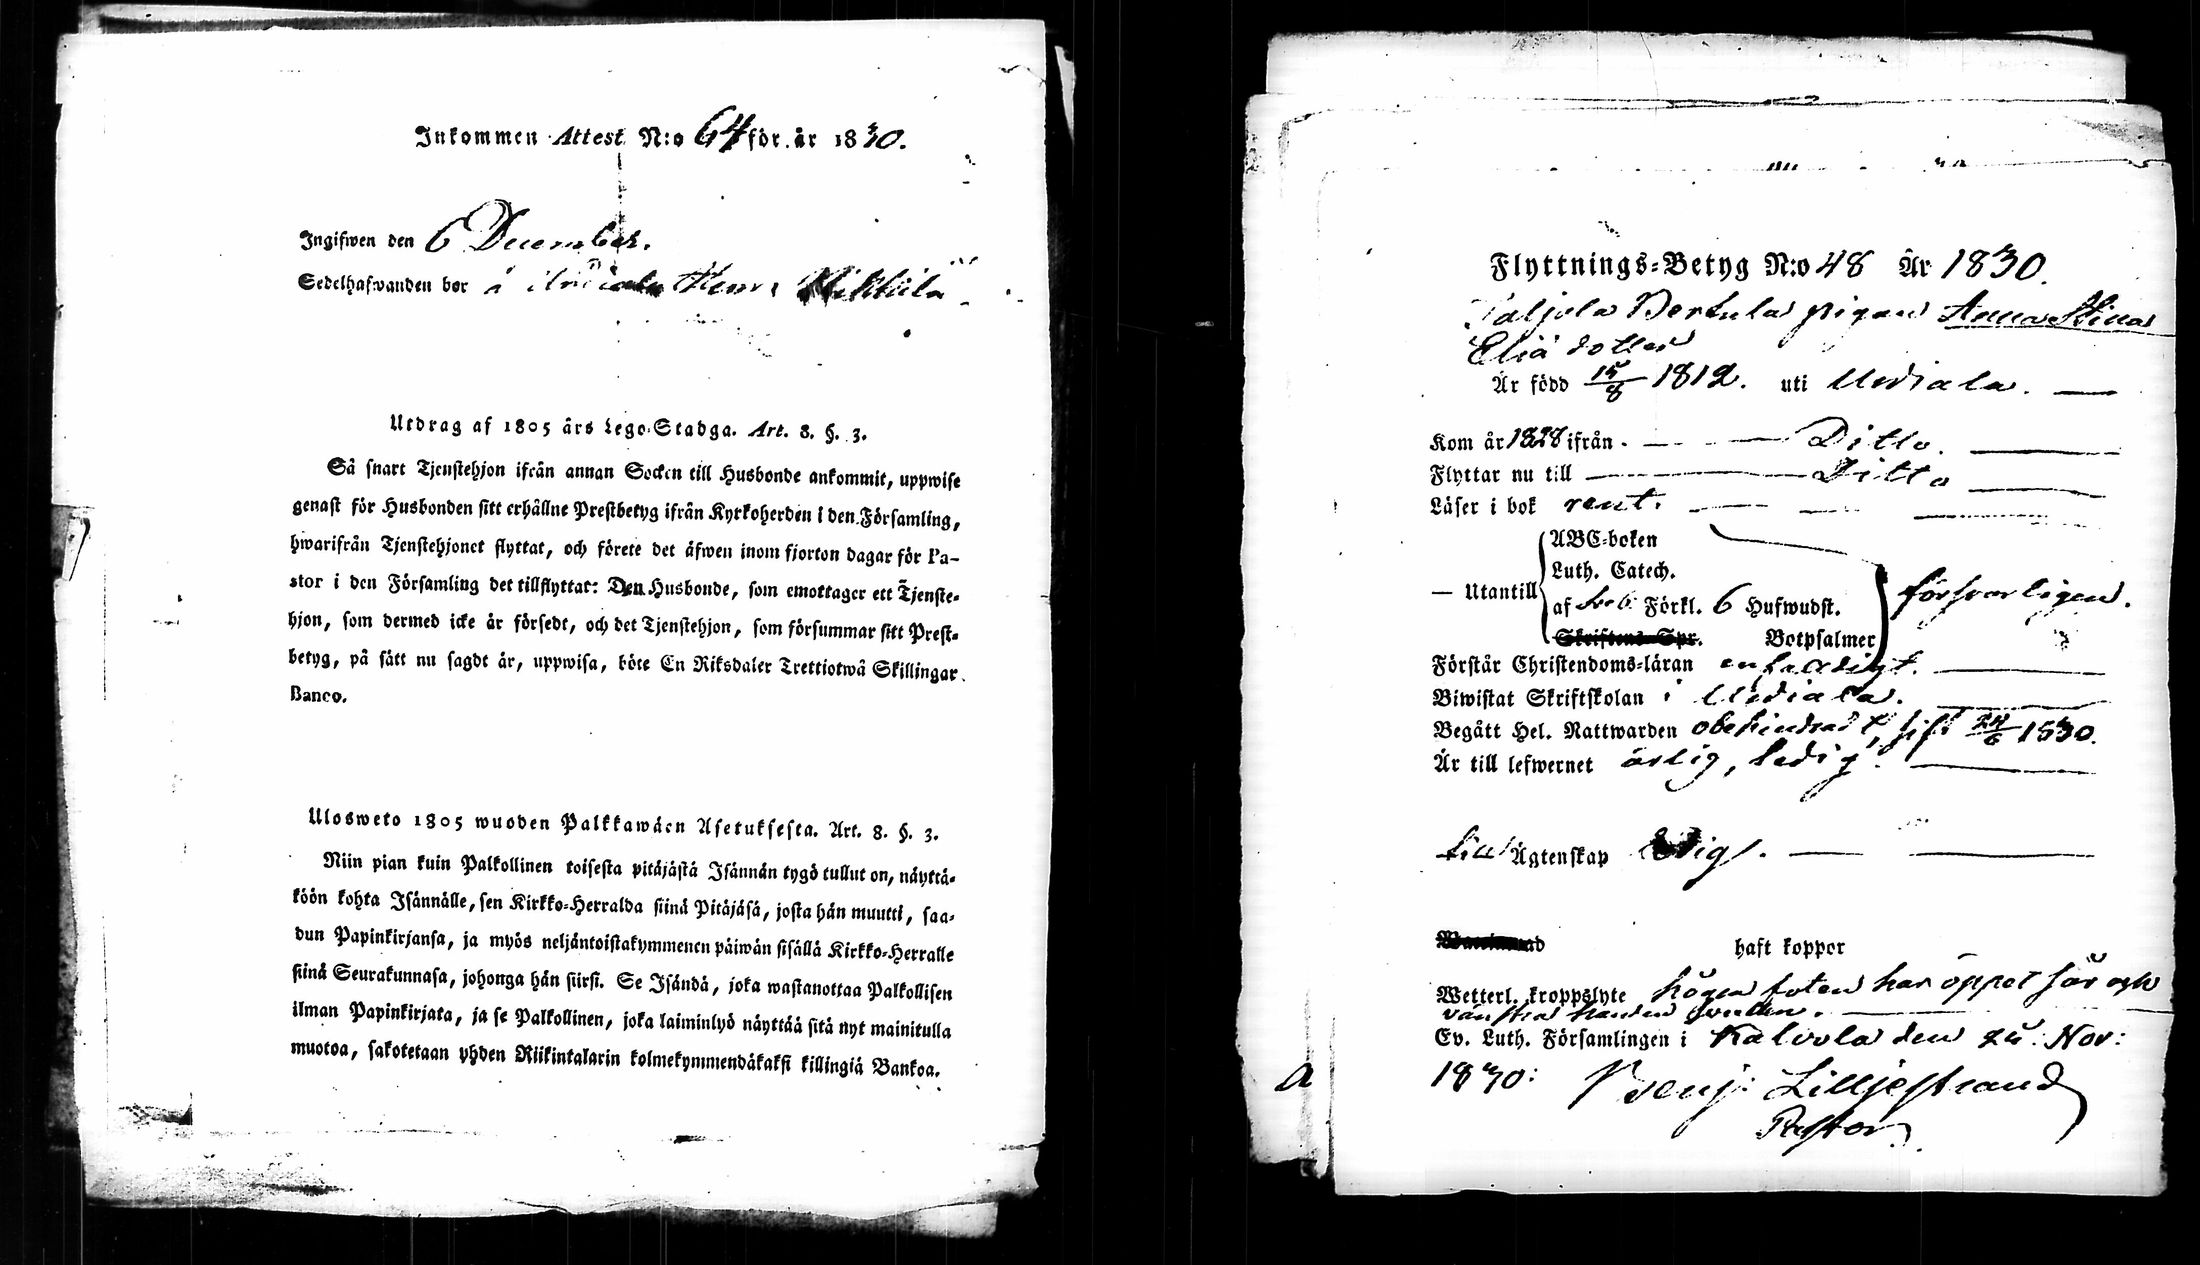 Inkommen Attest N:o 64 för år 1830.
Ingifwen den 6 December.
Sedelhafwanden bor å
Utdrag af 1805 års Lego-Stadga. Art. 8. §. 3.
Så snart Tjenstehjon ifrån annan Socken till Husbonde ankommit, uppwise
genast för Husbonden sitt erhållne Prestbetyg ifrån Kyrkoherden i den Församling,
hwarifrån Tjenstehjonet flyttat, och förete det äfwen inom fjorton dagar för Pa-
stor i den Församling det tillflyttat: Den Husbonde, som emottager ett Tjenste-
hjon, som dermed icke är försedt, och det Tjenstehjon, som försummar sitt Prest-
betyg, på sätt nu sagdt är, uppwisa, böte En Riksdaler Trettiotwå Skillingar
Banco.
Ulosweto 1805 wuoden Palkkawäen Asetuksesta. Art. 8. §. 3.
Niin pian kuin Palkollinen toisesta pitäjästä Isännän tygö tullut on, näyttä-
köön kohta Isännälle, sen Kirkko-Herralda siinä Pitäjäsä, josta hän muutti, saa-
dun Papinkirjansa, ja myös neljäntoistakymmenen päiwän sisällä Kirkko-Herralle
siinä Seurakunnasa, johonga hän siirsi. Se Isändä, joka wastanottaa Palkollisen
ilman Papinkirjata, ja se Palkollinen, joka laiminlyö näyttää sitä nyt mainitulla
muotoa, sakotetaan yhden Riikintalarin kolmekymmendäkaksi killingiä Bankoa.
Flyttnings-Betyg N:o 48 År 1830.
Taljola Bertula pigan Anna Stina
Eliä dotter
Är född 15/8 1812. uti Urdiala.
Kom år 1828 ifrån Ditto.
Flyttar nu till Ditto
Läser i bok rent.
ABC-boken
Luth. Catech.
— Utantill af Sveb. Förkl. 6 Hufwudst. försvarligen.
Skriftens Spr. Botpsalmer
Förstår Christendoms-läran enfaldigt.
Biwistat Skriftskolan i Urdiala.
Begått Hel. Nattwarden obehindradt, sist 24/6 1830.
Är till lefwernet ärlig, ledig.
till Ägtenskap ledig.
haft koppor
Wetterl. kroppslyte högra foten har öppet sår och
vänstra handen
Ev. Luth. Församlingen i Kalvola den Nov:
1830: Benj: Lilljestrand
Pastor.